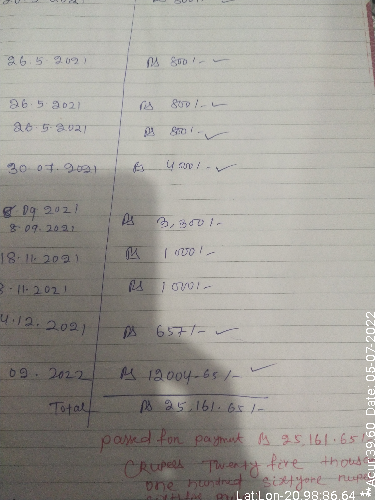 26.5.2021 Rs 800/-
26.5.2021 Rs 800/-
26.5.2021 Rs 800/-
30.07.2021 Rs 4500/-
8.09.2021
8.09.2021 Rs 3,300/-
18.11.2021 Rs 1000/-
11.2021 Rs 1000/-
12.2021 Rs 657/-
09.2022 Rs 12004.65/-
Total Rs 25,161.65/-
passed for payment Rs 25,161.65/
(Rupees Twenty five thous
one hundred sixtyone rupe
Lat:Lon-20.98:86.64 **Acur:39.60 Date: 05-07-2022